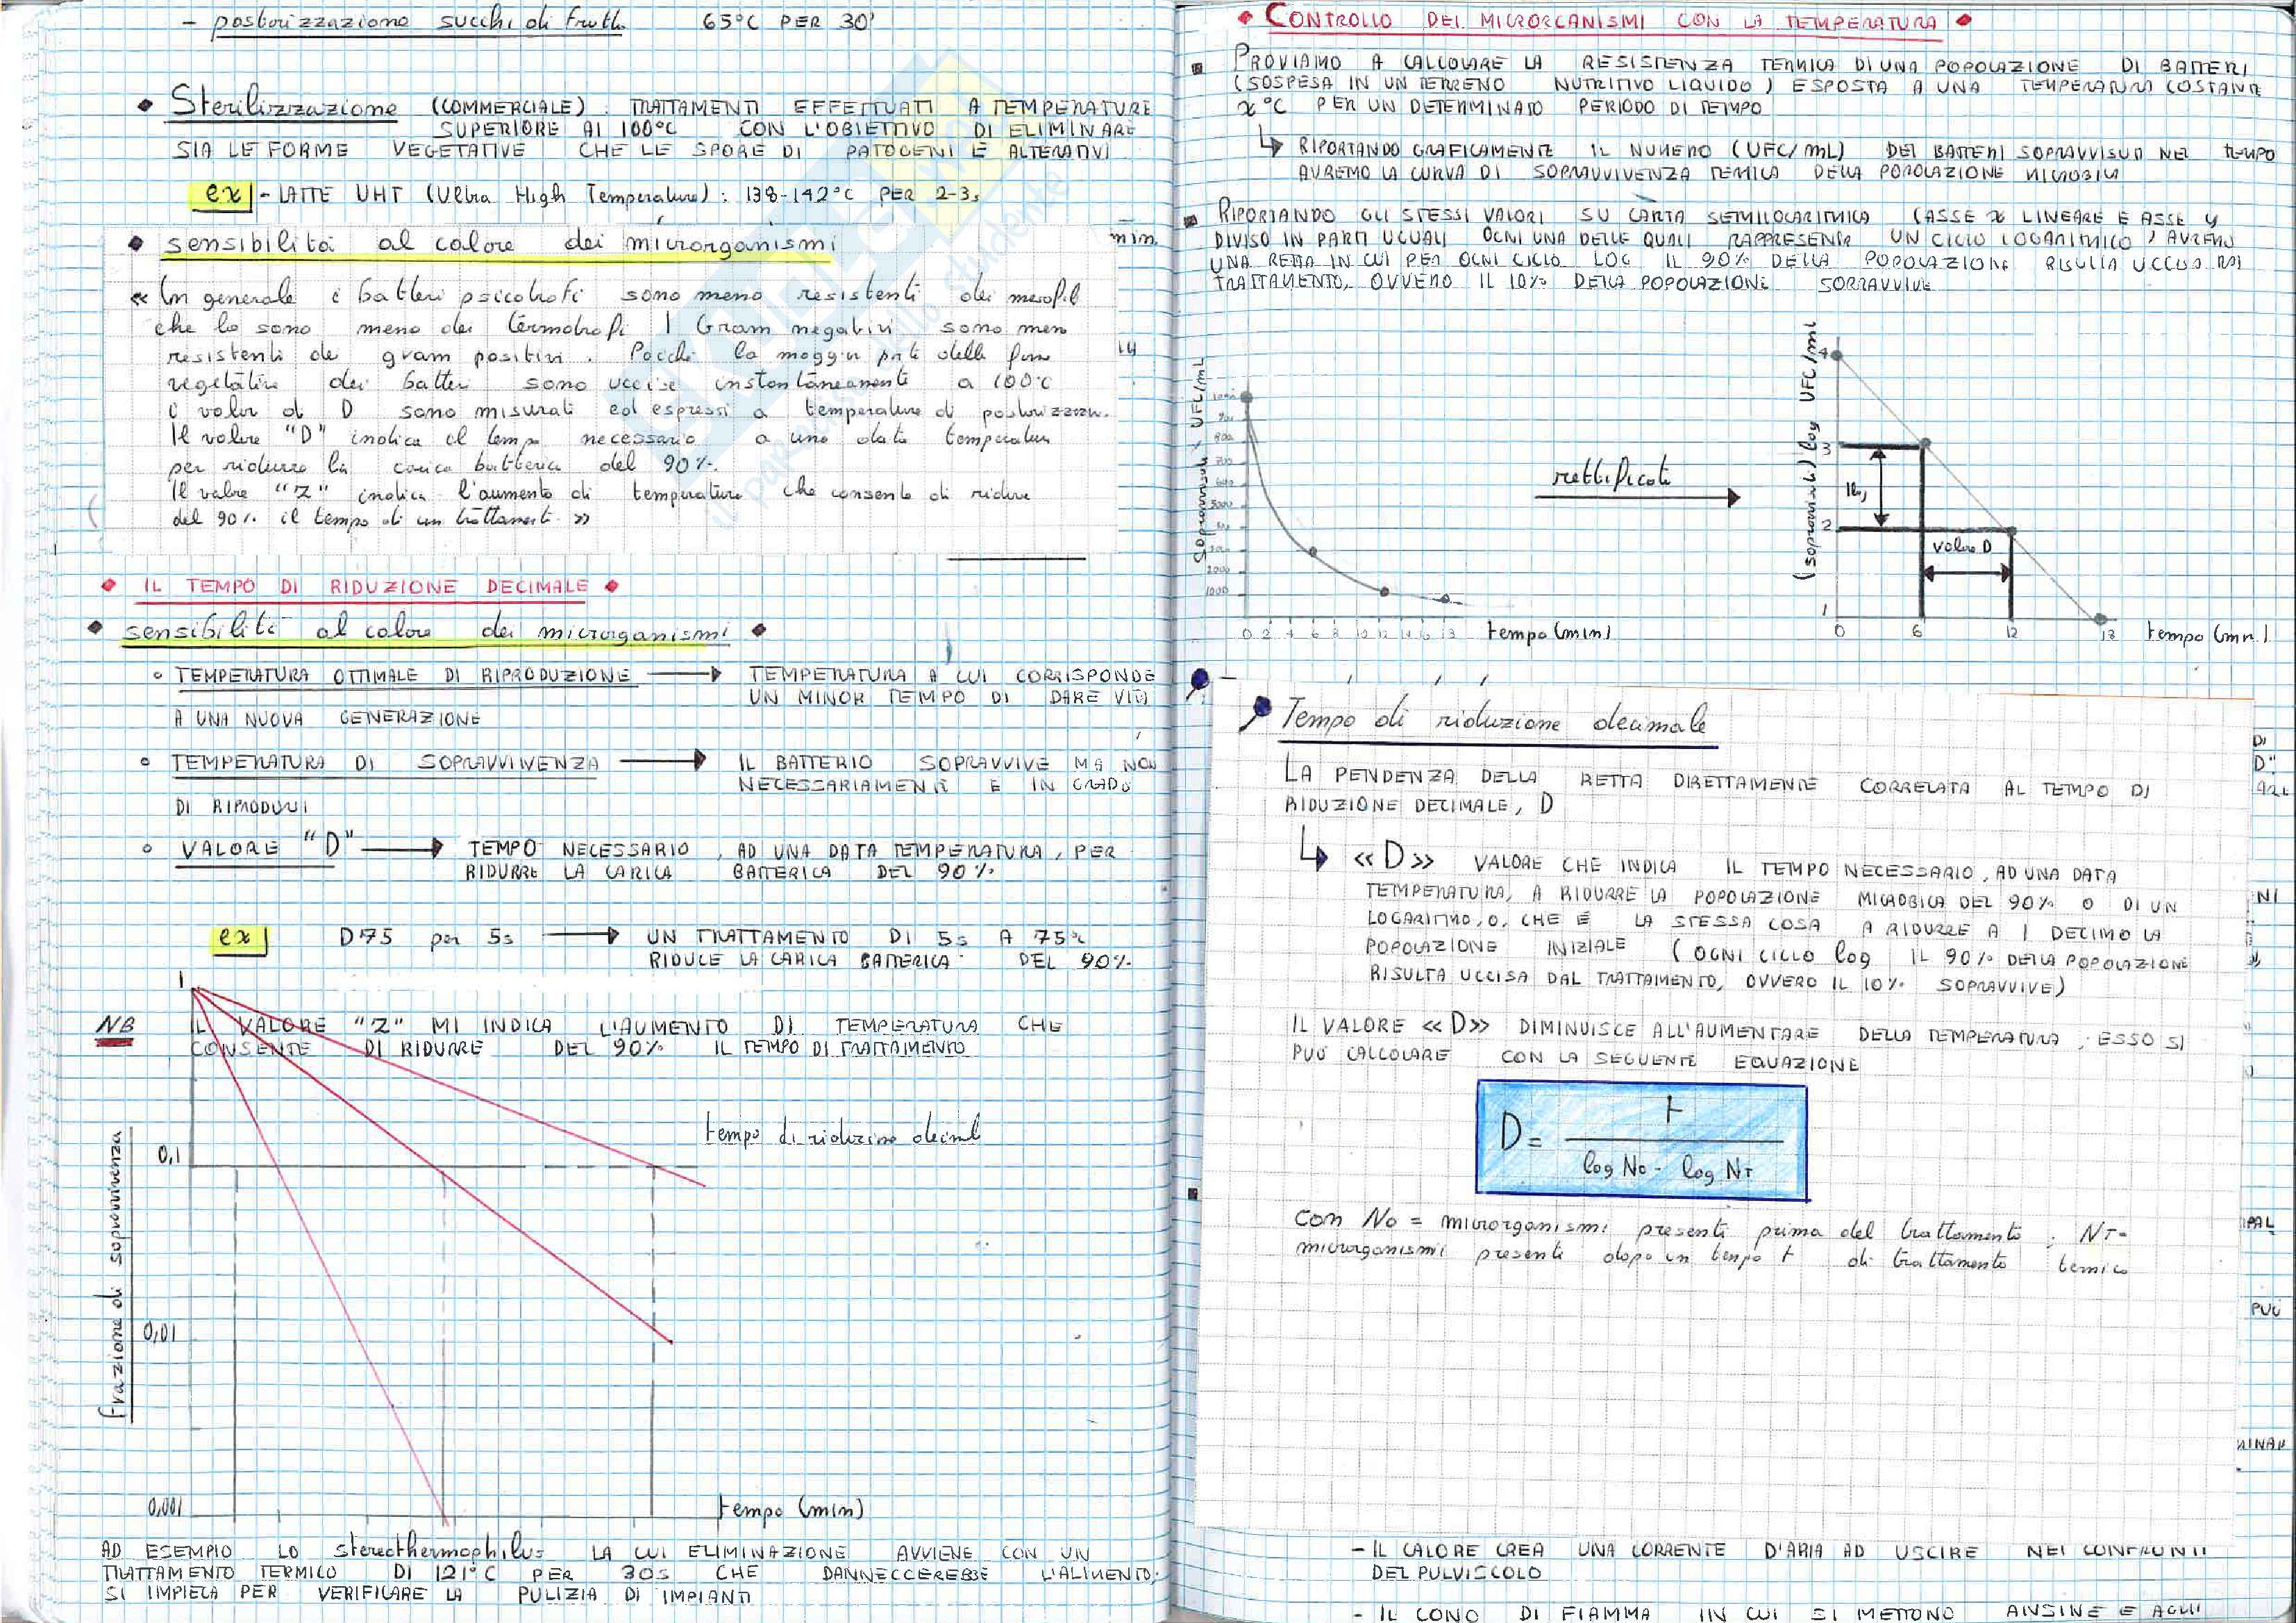 - pastorizzazione succhi di frutta 65°C PER 30'
• Sterilizzazione (COMMERCIALE) : TRATTAMENTI EFFETTUATI A TEMPERATURE
SUPERIORE AI 100°C CON L'OBIETTIVO DI ELIMINARE
SIA LE FORME VEGETATIVE CHE LE SPORE DI PATOGENI E ALTERATIVI
ex - LATTE UHT (Ultra High Temperature) : 138-142°C PER 2-3s
min.
• sensibilità al calore dei microrganismi
« In generale i batteri psicotrofi sono meno resistenti dei mesofil
che lo sono meno dei termotrofi I Gram negativi sono men
resistenti dei gram positivi. Poiché la maggior parte delle forme
vegetative dei batteri sono uccise instantaneamente a 100°C
i valori di D sono misurati ed espressi a temperature di pastorizzazion.
Il valore "D" indica il tempo necessario a una data temperatura
per ridurre la carica batterica del 90%.
Il valore "Z" indica l'aumento di temperatura che consente di ridurre
del 90% il tempo di un trattamento »
• IL TEMPO DI RIDUZIONE DECIMALE •
• sensibilità al calore dei microrganismi •
° TEMPERATURA OTTIMALE DI RIPRODUZIONE → TEMPERATURA A CUI CORRISPONDE
UN MINOR TEMPO DI DARE VITA
A UNA NUOVA GENERAZIONE
° TEMPERATURA DI SOPRAVVIVENZA → IL BATTERIO SOPRAVVIVE MA NON
NECESSARIAMENTE E IN GRADO
DI RIPRODURSI
° VALORE "D" → TEMPO NECESSARIO, AD UNA DATA TEMPERATURA, PER
RIDURRE LA CARICA BATTERICA DEL 90%.
ex D75 per 5s → UN TRATTAMENTO DI 5s A 75°C
RIDUCE LA CARICA BATTERICA DEL 90%.
1
NB IL VALORE "Z" MI INDICA L'AUMENTO DI TEMPERATURA CHE
CONSENTE DI RIDURRE DEL 90% IL TEMPO DI TRATTAMENTO
tempo di riduzione decimal
0,1
frazione di sopravvivenza
0,01
0,001
tempo (min)
AD ESEMPIO LO stereothermophilus LA CUI ELIMINAZIONE AVVIENE CON UN
TRATTAMENTO TERMICO DI 121°C PER 30s CHE DANNECCEREBBE L'ALIMENTO,
SI IMPIEGA PER VERIFICARE LA PULIZIA DI IMPIANTI
• CONTROLLO DEI MICRORGANISMI CON LA TEMPERATURA •
PROVIAMO A CALCOLARE LA RESISTENZA TERMICA DI UNA POPOLAZIONE DI BATTERI
(SOSPESA IN UN TERRENO NUTRITIVO LIQUIDO) ESPOSTA A UNA TEMPERATURA COSTANTE
x°C PER UN DETERMINATO PERIODO DI TEMPO
↳ RIPORTANDO GRAFICAMENTE IL NUMERO (UFC/mL) DEI BATTERI SOPRAVVISUTI NEL TEMPO
AVREMO LA CURVA DI SOPRAVVIVENZA TERMICA DELLA POPOLAZIONE MICROBICA
RIPORTANDO GLI STESSI VALORI SU CARTA SEMILOGARITMICA (ASSE x LINEARE E ASSE y
DIVISO IN PARTI UGUALI OGNI UNA DELLE QUALI RAPPRESENTA UN CICLO LOGARITMICO, AVREMO
UNA RETTA IN CUI PER OGNI CICLO LOG IL 90% DELLA POPOLAZIONE RISULTA UCCISO DAL
TRATTAMENTO, OVVERO IL 10% DELLA POPOLAZIONE SOPRAVVIVE
Sopravvissuti UFC/mL
2000
1000
0 2 4 6 8 10 12 14 16 18 tempo (min)
rettificata
(sopravvissuti) log UFC/ml
4
3
1 log
2
valore D
1
0 6 12 18 tempo (min)
Tempo di riduzione decimale
LA PENDENZA DELLA RETTA DIRETTAMENTE CORRELATA AL TEMPO DI
RIDUZIONE DECIMALE, D
↳ «D» VALORE CHE INDICA IL TEMPO NECESSARIO, AD UNA DATA
TEMPERATURA, A RIDURRE LA POPOLAZIONE MICROBICA DEL 90% O DI UN
LOGARITMO, O, CHE E LA STESSA COSA A RIDURRE A 1 DECIMO LA
POPOLAZIONE INIZIALE (OGNI CICLO log IL 90% DELLA POPOLAZIONE
RISULTA UCCISA DAL TRATTAMENTO, OVVERO IL 10% SOPRAVVIVE)
IL VALORE «D» DIMINUISCE ALL'AUMENTARE DELLA TEMPERATURA, ESSO SI
PUÒ CALCOLARE CON LA SEGUENTE EQUAZIONE
D = t / log No - log NT
con No = microrganismi presenti prima del trattamento ; NT =
microrganismi presenti dopo un tempo t di trattamento termico
- IL CALORE CREA UNA CORRENTE D'ARIA AD USCIRE NEI CONFRONTI
DEL PULVISCOLO
- IL CONO DI FIAMMA IN CUI SI METTONO ANSINE E AGHI